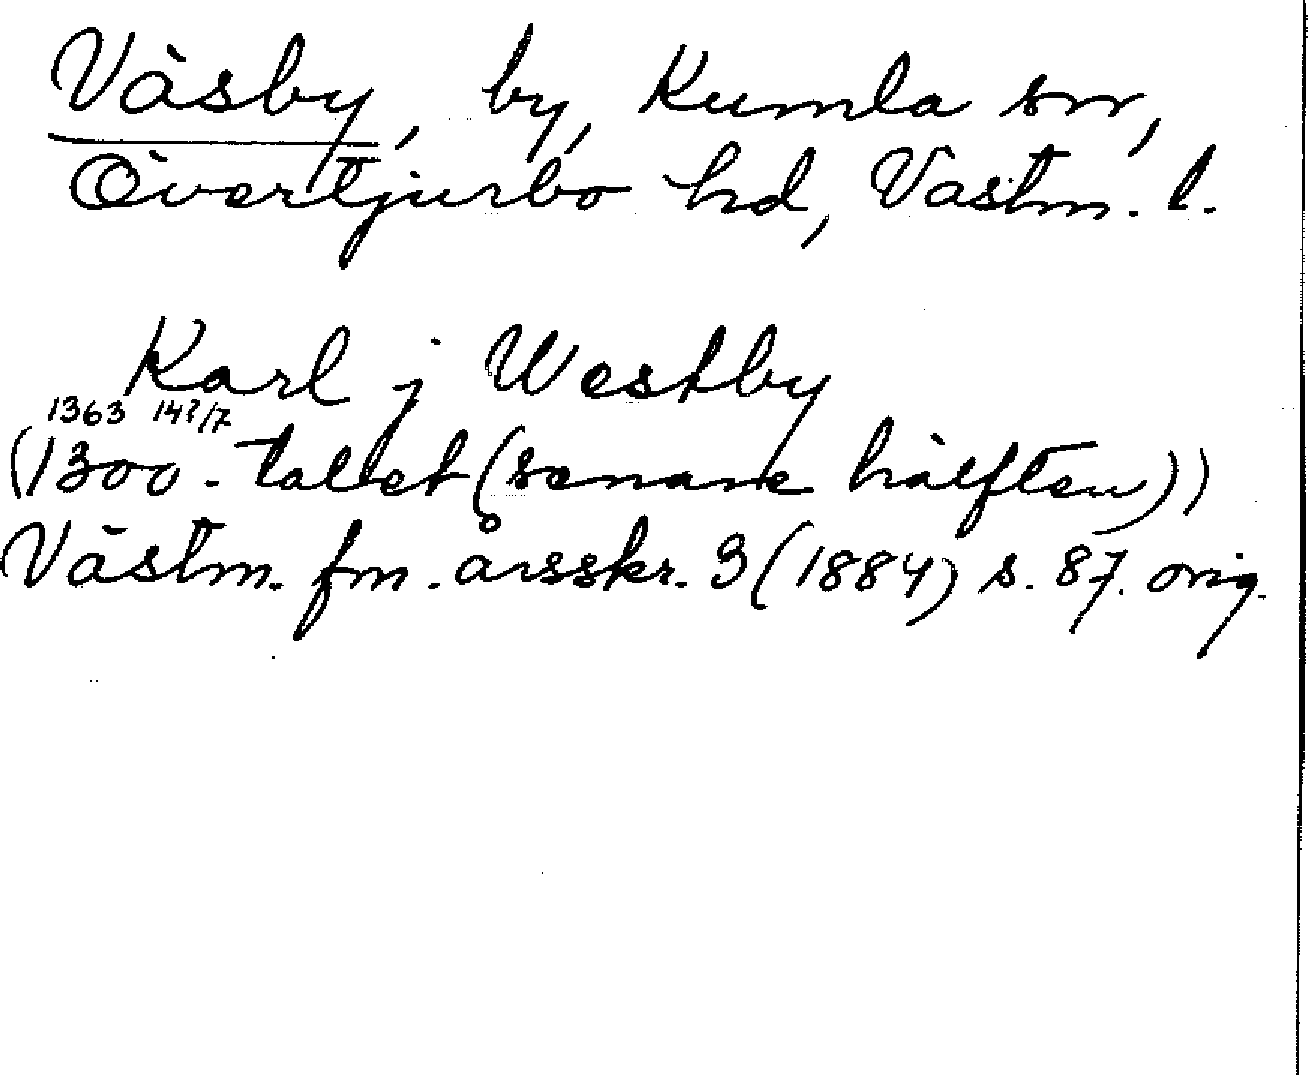 Väsby, by, Kumla sn,
Övertjurbo hd, Västm. l.
Karl j Westby
1363 14?/7
(1300-tallet (senare hälften))
Västm. fm. årsskr. 3 (1884) s. 87. orig.